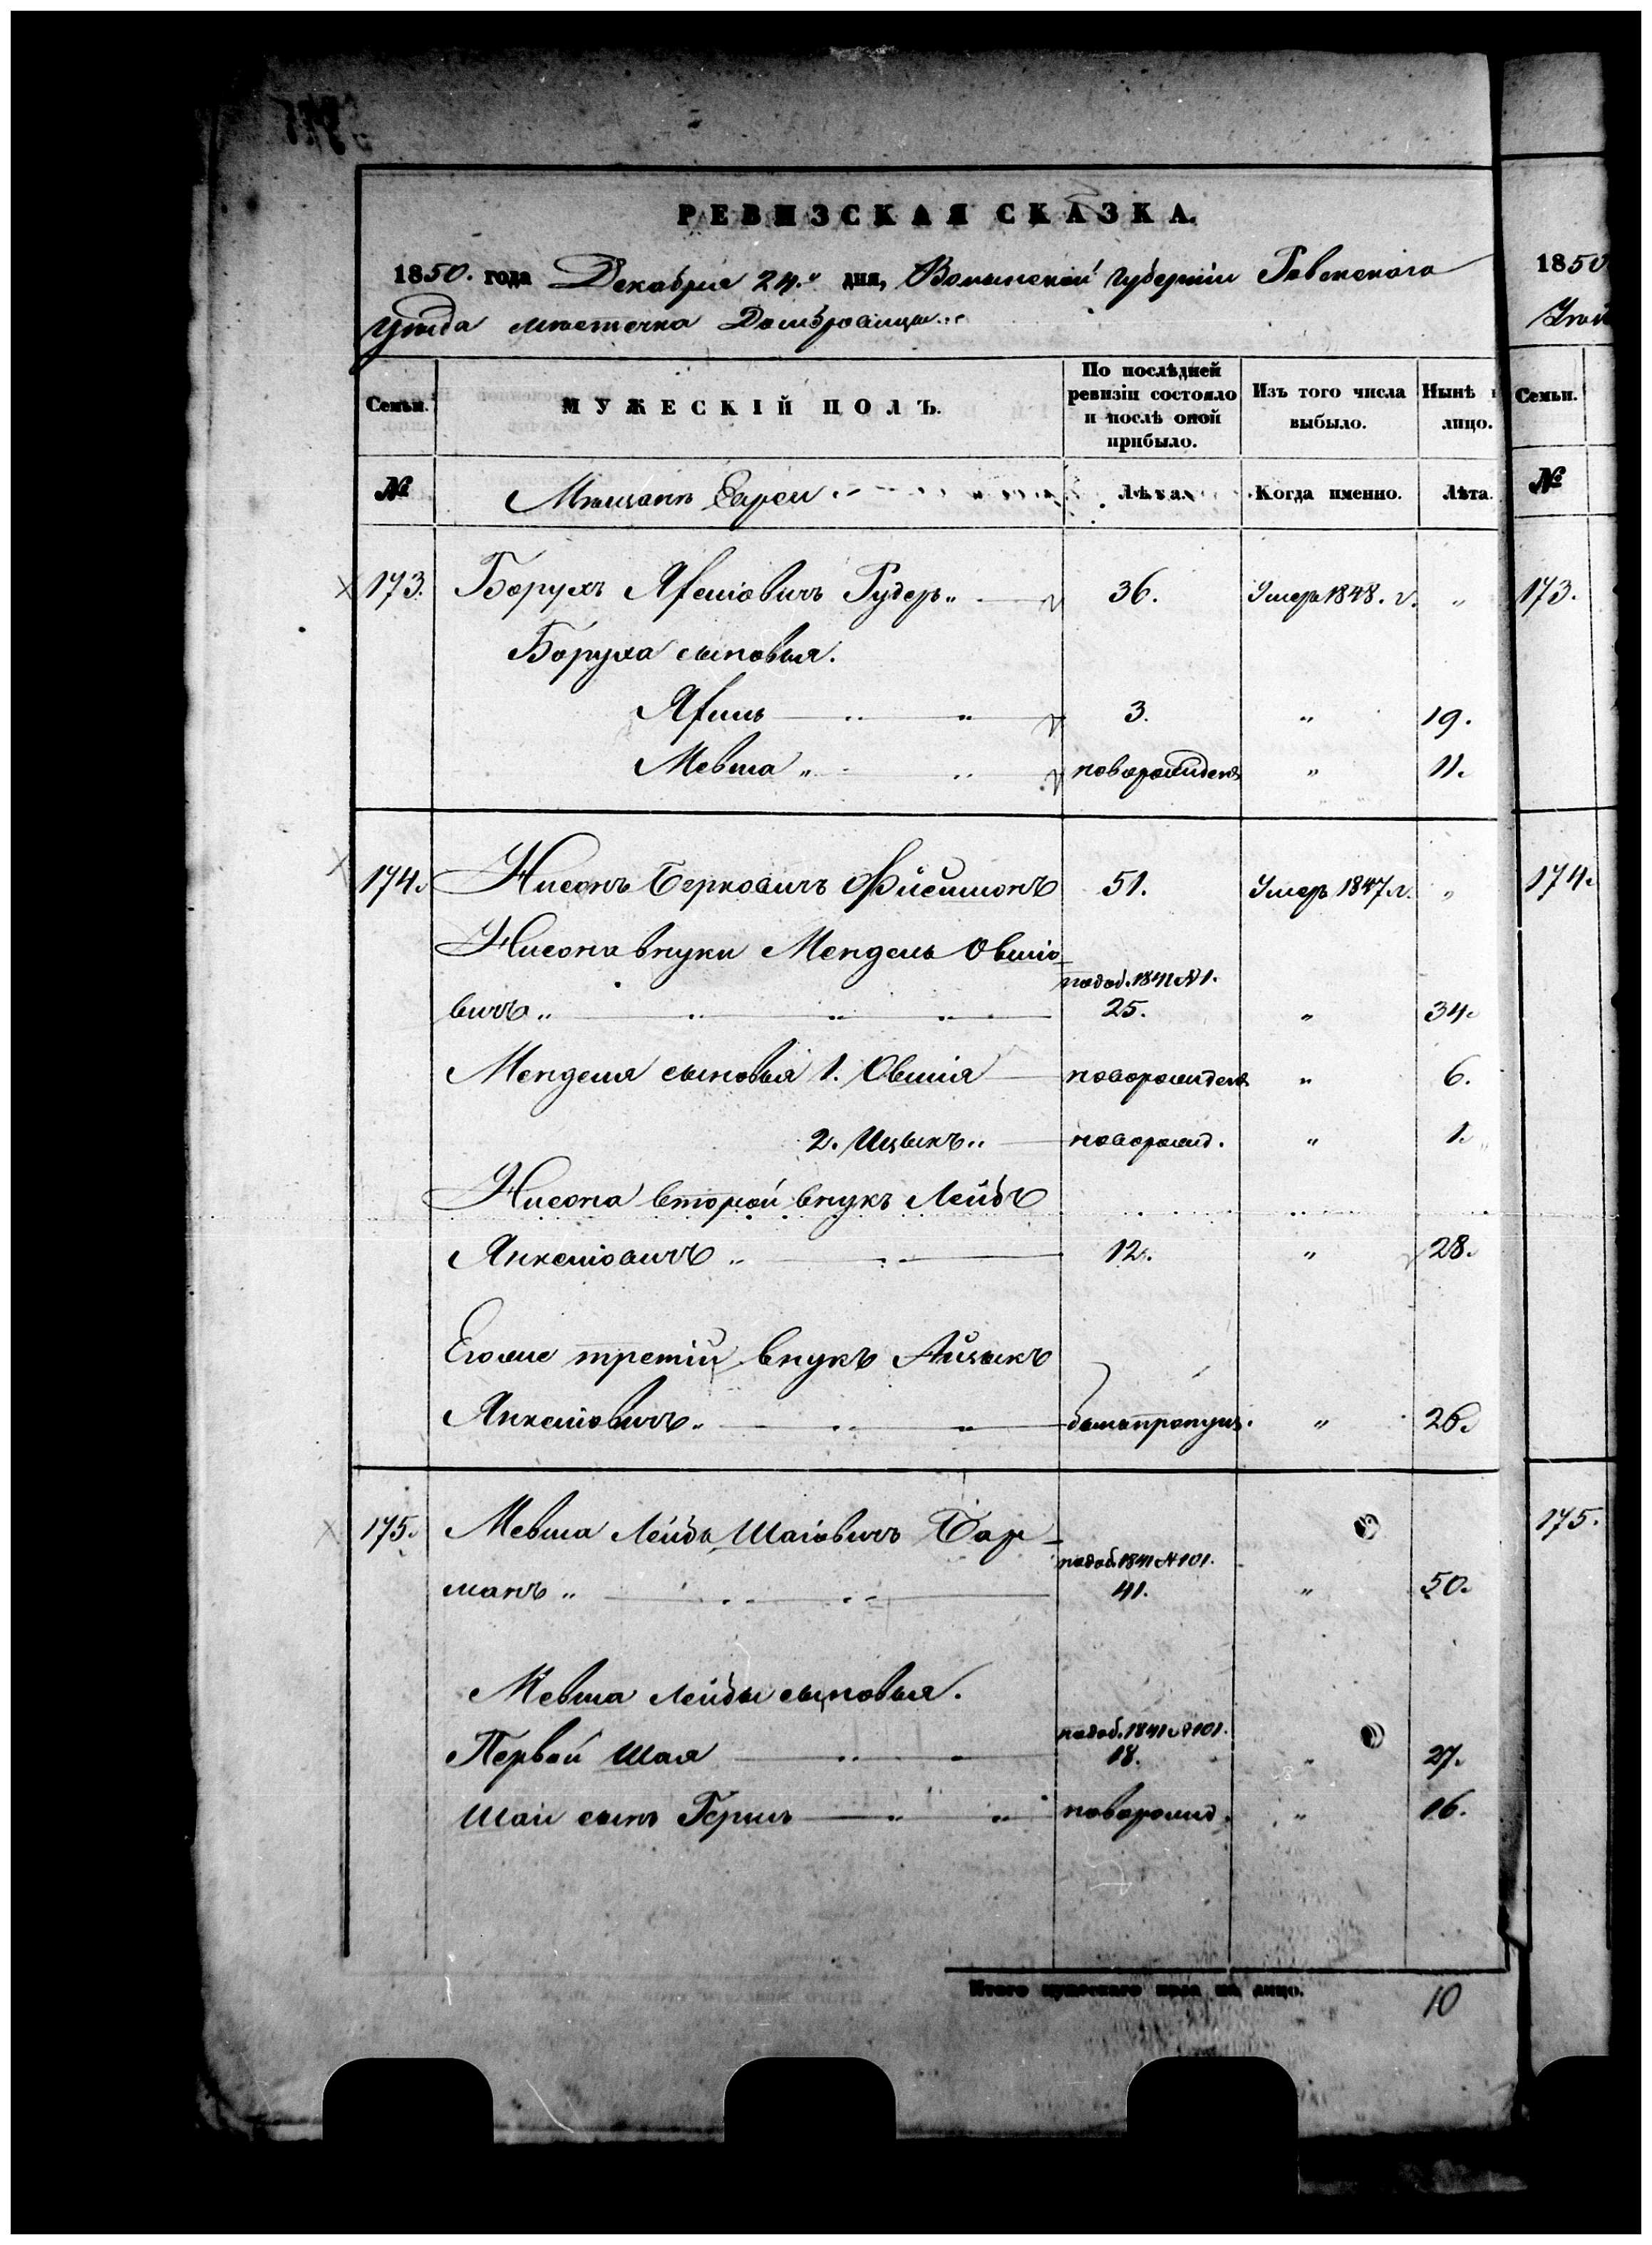 РЕВИЗСКАЯ СКАЗКА.
1850. года Декабря 24.го дня, Волынской губерніи Ровенскаго
уѣзда мѣстечка Домбровицы
Семьи. МУЖЕСКІЙ ПОЛЪ. По послѣдней ревизіи состояло и послѣ оной прибыло. Изъ того числа выбыло. Нынѣ лицо.
№ Мѣщанъ Евреи Лѣта. Когда именно. Лѣта.
173. Борухъ Лейговичъ Гудеръ 36. Умеръ 1848. г. "
Боруха сыновья.
3. " 19.
Мевша " новорожденъ " 11.
174. Нисонъ Берковичъ Фишманъ 51. Умеръ 1847 г. "
Нисона внуки Мендель Овшіо-
вичъ " подоб. 1841 №1. 25. " 34.
Менделя сыновья 1. Овшія новорожденъ " 6.
2. Ицыкъ " новорожд. " 1.
Нисона второй внукъ Лейбъ
Янкеліовичъ " 12. " 28.
Егоже третій внукъ Айзыкъ
Янкеліовичъ " былъ пропущ. " 26.
175. Мевша Лейба Шаіовичъ Бар-
манъ " подоб. 1841 №101. 41. " 50.
Мевша Лейбы сыновья.
Первой Шая подоб. 1841 №101. 18. " 27.
Шаи сынъ Гершъ новорожд. " 16.
Итого мужескаго пола на лицо. 10
1850
Семьи.
№
173.
174.
175.